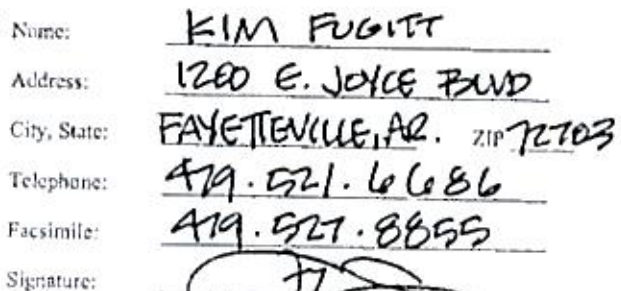 Name: KIM FUGITT
Address: 1200 E. JOYCE BLVD
City, State: FAYETTEVILLE, AR. ZIP 72703
Telephone: 479.521.6686
Facsimile: 479.527.8855
Signature: